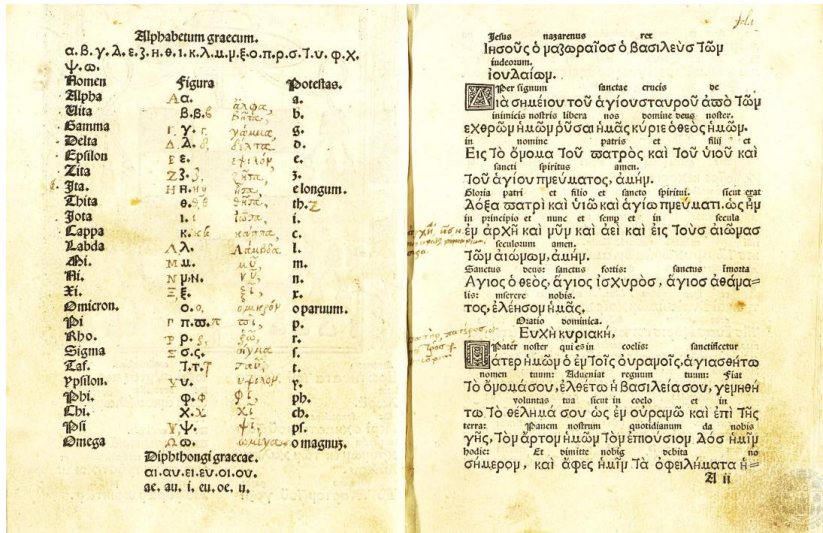 Alphabetum graecum.
α.β.γ.δ.ε.ζ.η.θ.ι.κ.λ.μ.ν.ξ.ο.π.ρ.σ.τ.υ.φ.χ.
ψ.ω.
Nomen Figura Potestas.
Alpha Αα. ἄλφα, a.
Vita β.β. βῆτα, b.
Gamma Γ γ. γάμμα, g.
Delta Δ.δ. δέλτα, d.
Epsilon Ε ε. ἐψιλόν, e.
Zita Ζ ζ. ζῆτα, z.
Ita. Η η. ἦτα, e longum.
Thita θ. θῆτα, th.
Jota ι. ἰῶτα, i.
Cappa κ. κάππα, c.
Labda Λ λ. λάμβδα l.
Mi. Μ μ. μῦ, m.
Ni. Ν ν. νῦ, n.
Xi. Ξ ξ. ξῖ, x.
Omicron. ο. ὀμικρόν o paruum.
Pi Γ π.ϖ. πῖ, p.
Rho. Ρ ρ. ῥῶ, r.
Sigma Σ σ.ς. σίγμα s.
Taf. Τ.τ. ταῦ, t.
Ypsilon. Υ υ. ὐψιλόν, y.
Phi. φ. φῖ, ph.
Chi. Χ.χ χῖ ch.
Psi Ψ ψ. ψῖ, ps.
Omega Ω ω. ὠμέγα o magnuz.
Diphthongi graecae.
αι.αυ.ει.ευ.οι.ου.
ae. au. i. eu. oe. u.
Jesus nazarenus rex
Ιησοῦς ὁ ναζωραῖος ὁ βασιλεὺς τῶν
iudeorum.
ἰουδαίων.
Per signum sanctae crucis de
Διὰ σημείου τοῦ ἁγίου σταυροῦ ἀπὸ τῶν
inimicis nostris libera nos domine deus noster.
εχθρῶν ἡμῶν ῥῦσαι ἡμᾶς κύριε ὁ θεὸς ἡμῶν.
in nomine patris et filij et
Εις τὸ ὄνομα τοῦ πατρὸς καὶ τοῦ υἱοῦ καὶ
sancti spiritus amen.
τοῦ ἁγίου πνεύματος, ἀμήν.
Gloria patri et filio et sancto spiritui. sicut erat
Δόξα πατρὶ καὶ υἱῶ καὶ ἁγίω πνεύματι. ὡς ἦν
in principio et nunc et semp et in secula
ἐν ἀρχῆ καὶ νῦν καὶ ἀεὶ καὶ εἰς τοὺς αἰῶνας
seculorum amen.
τῶν αἰώνων, ἀμήν.
Sanctus deus: sanctus fortis: sanctus imorta
Αγιος ὁ θεὸς, ἅγιος ἰσχυρὸς, ἅγιος ἀθάνα=
lis: miserere nobis.
τος, ἐλέησον ἡμᾶς.
Oratio dominica.
Ευχὴ κυριακή,
Pater noster qui es in coelis: sanctificetur
Πάτερ ἡμῶν ὁ ἐν τοῖς οὐρανοῖς, ἁγιασθήτω
nomen tuum: Adueniat regnum tuum: Fiat
τὸ ὄνομά σου, ἐλθέτω ἡ βασιλεία σου, γενηθή
voluntas tua sicut in coelo et in
τω τὸ θέλημά σου ὡς ἐν οὐρανῶ καὶ ἐπὶ τῆς
terra: Panem nostrum quotidianum da nobis
γῆς, τὸν ἄρτον ἡμῶν τὸν ἐπιούσιον δὸς ἡμῖν
hodie: Et dimitte nobis debita no
σήμερον, καὶ ἄφες ἡμῖν τὰ ὀφειλήματα ἡ=
A ii